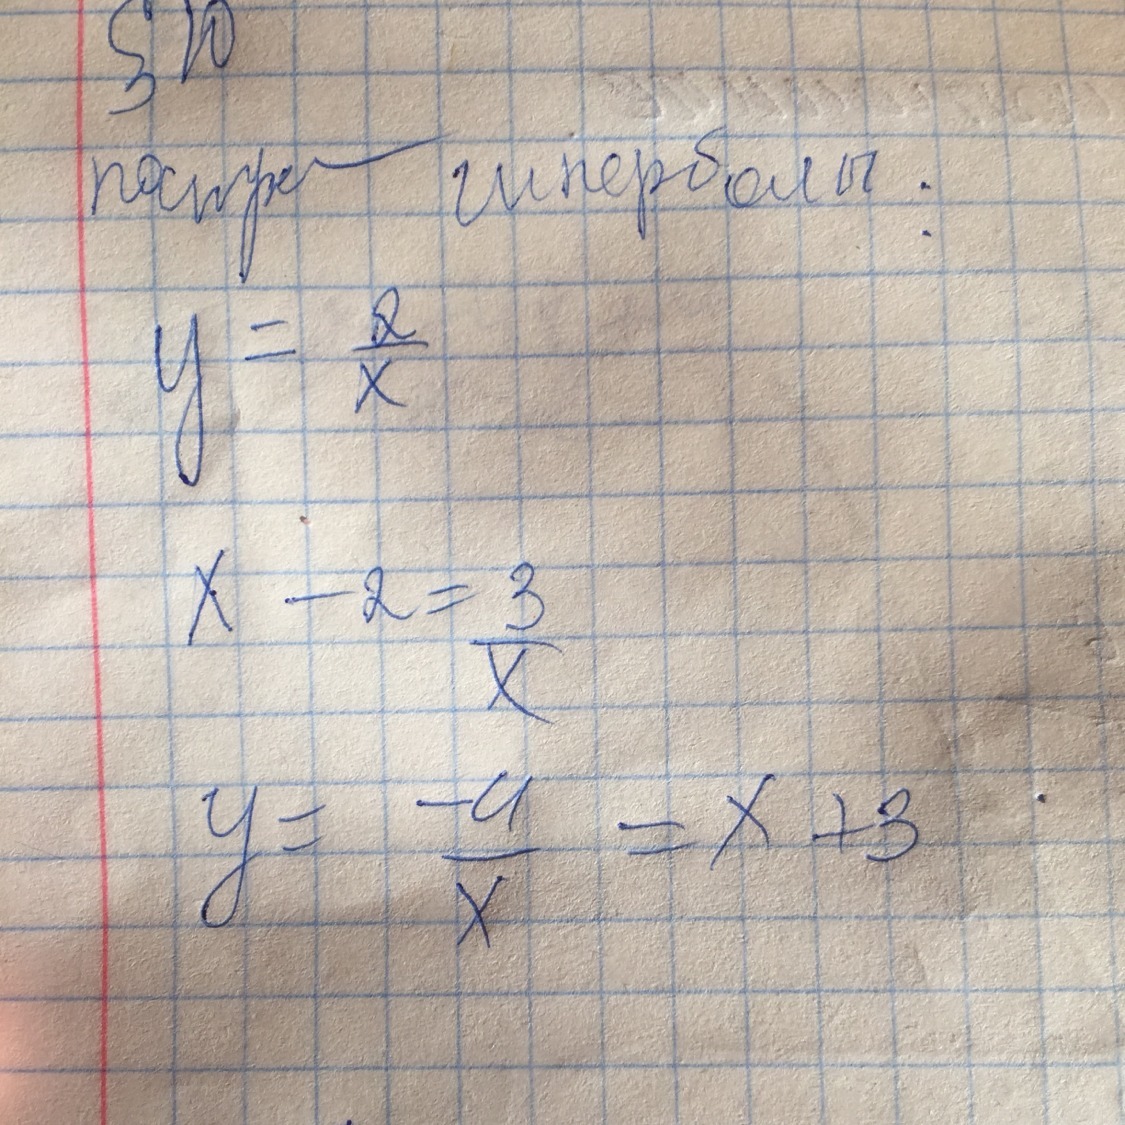 §10
постр гиперболы:
y = 2/x
x - 2 = 3/x
y = -4/x = x + 3